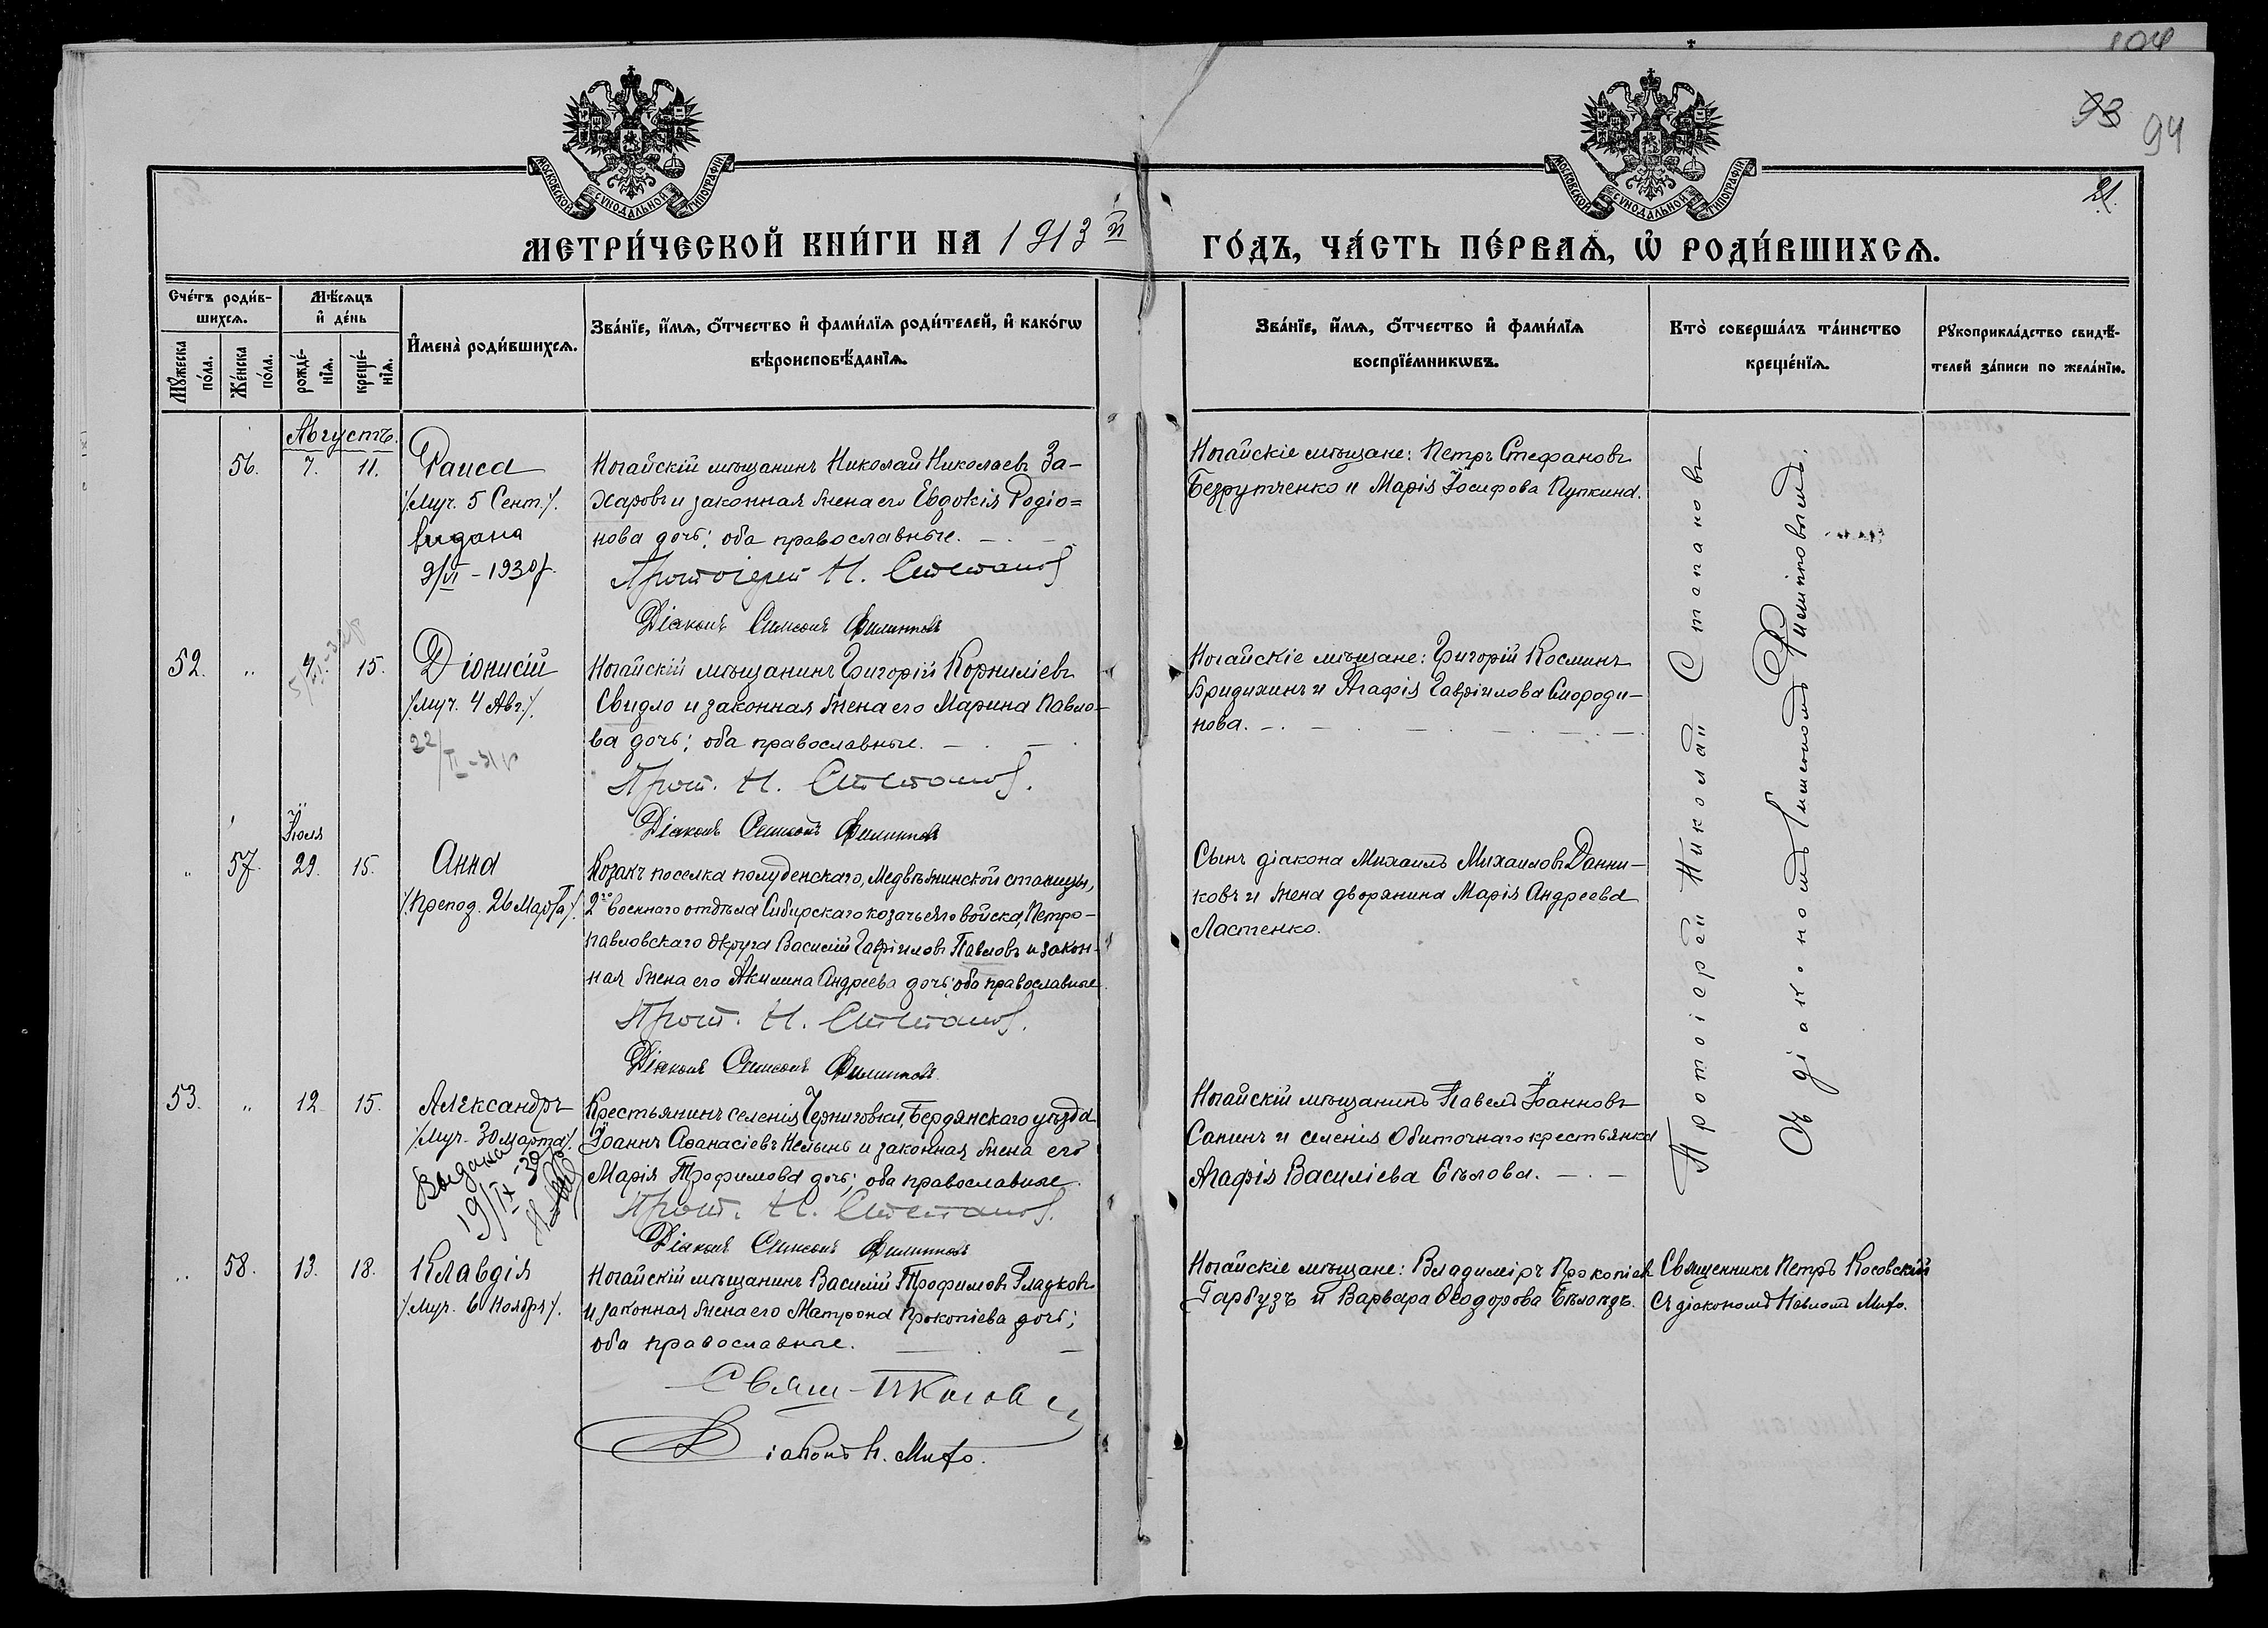 104
93
94
21.
МОСКОВСКОЙ СУНОДАЛЬНОЙ ТИПОГРАФІИ
МОСКОВСКОЙ СУНОДАЛЬНОЙ ТИПОГРАФІИ
МЕТРИ́ЧЕСКОЙ КНИ́ГИ НА 1913й
ГО́ДЪ, ЧА́СТЬ ПЕ́РВАѦ, Ѡ҆ РОДИ́ВШИХСѦ.
Сче́тъ роди́в-
шихсѧ.
Мꙋ́жеска по́ла.
Же́нска по́ла.
Мѣ́сѧцъ
и҆ де́нь
рожде́-
нїѧ.
креще́-
нїѧ.
И҆мена̀ роди́вшихсѧ.
Зва́нїе, и҆́мѧ, ѻ҆́тчество и҆ фами́лїѧ роди́телей, и҆ како́гѡ
вѣроисповѣ́данїѧ.
Зва́нїе, и҆́мѧ, ѻ҆́тчество и҆ фами́лїѧ
воспрїе́мникѡвъ.
Кто̀ соверша́лъ та́инство
креще́нїѧ.
Рꙋкоприкла́дство свидѣ́-
телей за́писи по жела́нїю.
Августъ.
56. 7. 11. Раиса
/Муч. 5 Сент./.
видана
9/VI – 1930 р.
Ногайскій мѣщанинъ Николай Николаевъ За-
харовъ и законная жена его Евдокія Родіо=
нова дочь; оба православные. –
Протоіерей Н. Степановъ
Діаконъ Симеонъ Филипповъ
Ногайскіе мѣщане: Петръ Стефановъ
Безрутченко и Марія Іосифова Пупкина.
Протоіерей Николай Степановъ
Съ діакономъ Симеономъ Филипповымъ.
52. „ 4. 15. Діонисій
/Муч. 4 Авг./.
22/II – 31 р
Ногайскій мѣщанинъ Григорій Корниліевъ
Свидло и законная жена его Марина Павло-
ва дочь; оба православные. –
Прот. Н. Степановъ.
Діаконъ Симеонъ Филипповъ
Ногайскіе мѣщане: Григорій Косминъ
Бридихинъ и Агафія Гавріилова Смороди-
нова. –
Іюля
„ 57. 29. 15. Анна
/Препод. 26 Марта/.
Козакъ поселка полуденскаго, Медвѣжинской станицы,
2го военнаго отдѣла Сибирскаго козачьяго войска, Петро-
павловскаго округа Василій Гавріиловъ Павловъ и закон-
ная жена его Акилина Андреева дочь; оба православные.
Прот. Н. Степановъ.
Діаконъ Симеонъ Филипповъ.
Сынъ діакона Михаилъ Михаиловъ Данни-
ковъ и жена дворянина Марія Андреева
Ластенко.
53. „ 12. 15. Александръ
/Муч. 30 марта/.
Выдана
19/IX – 30
Крестьянинъ селенія Черниговки, Бердянскаго уѣзда
Іоаннъ Аѳанасіевъ Нелынь и законная жена его
Марія Трофимова дочь; оба православные.
Прот. Н. Степановъ.
Діаконъ Симеонъ Филипповъ
Ногайскій мѣщанинъ Павелъ Іоанновъ
Санинъ и селенія Обиточнаго крестьянка
Агафія Василіева Бѣлова. –
„ 58. 13. 18. Клавдія
/Муч. 6 Ноября/.
Ногайскій мѣщанинъ Василій Трофимовъ Гладковъ
и законная жена его Матрона Прокопіева дочь;
оба православные. –
Свящ. П Косов
Діаконъ П. Мито.
Ногайскіе мѣщане: Владиміръ Прокопіевъ
Гарбузъ и Варвара Ѳеодорова Бѣлоидъ.
Священникъ Петръ Косовскій
Съ діакономъ Павломъ Мито.